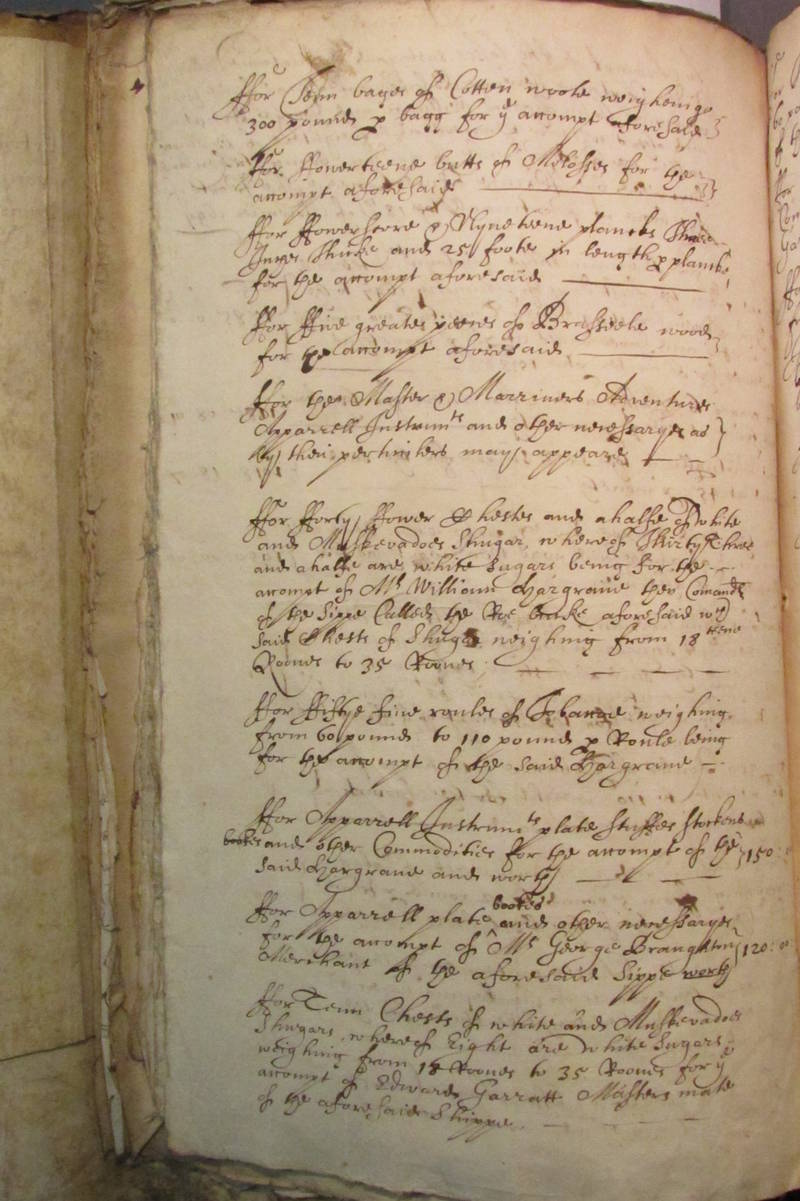 ffor Tenn bages of Cotten woole weighenige
300 pounds p bagg for ye accompt aforesaid
ffor ffowerteene butts of Molosses for the
accompt aforesaid
ffor ffowerscore & Nyneteene plancks Three
Inces Thicke and 25 foote in length p plancke
for the accompt aforesaid
ffor ffive greate peeces of Brasseele wood
for the accompt aforesaid
ffor the Master & Marriners Adventures
Apparrell Instrumts and other necessaryes as
by their perticulers may appeare
ffor fforty ffower Chestes and a halfe of white
and Muskevadoes Shugar, whereof Thirty three
and a halfe are white Sugars being for the
accompt of Mr William Hargrave then Comandr
of the Sippe Called the Roe Bucke aforesaid wch
said Chests of Shugar weighing from 18teene
Roones to 35 Roones
ffor ffiftye five roules of Tobacco weighing
from 60 pounds to 110 pounds p Roule being
for the accompt of the said Hargrave
ffor Apparrell Instrumts plate stuffes stockens
bookes and other Commodities for the accompt of the 150
said Hargrave and worth
ffor Apparrell plate bookes and other necessaryes
for the accompt of Mr George Branghton 120
Merchant of the aforesaid Sippe worth
ffor Tenn Chests of white and Muskevadoes
Shugars, whereof Eight are white Sugars
weighing from 18 Roones to 35 Roones for ye
accompt of Edward Garratt Masters mate
of the aforesaid Shippe